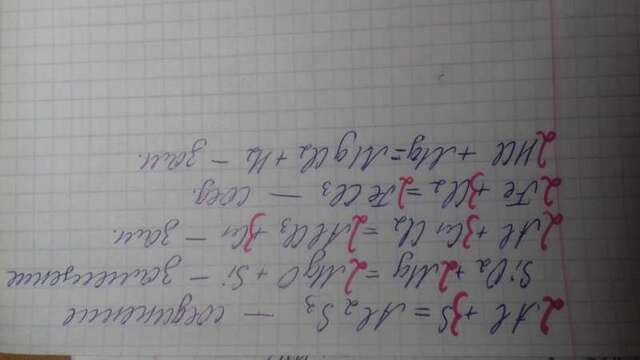 2Al + 3S = Al₂S₃ — соединение
SiO₂ + 2Mg = 2MgO + Si – замещение
2Al + 3CuCl₂ = 2AlCl₃ + 3Cu – зам.
2Fe + 3Cl₂ = 2FeCl₃ — соед.
2HCl + Mg = MgCl₂ + H₂ – зам.